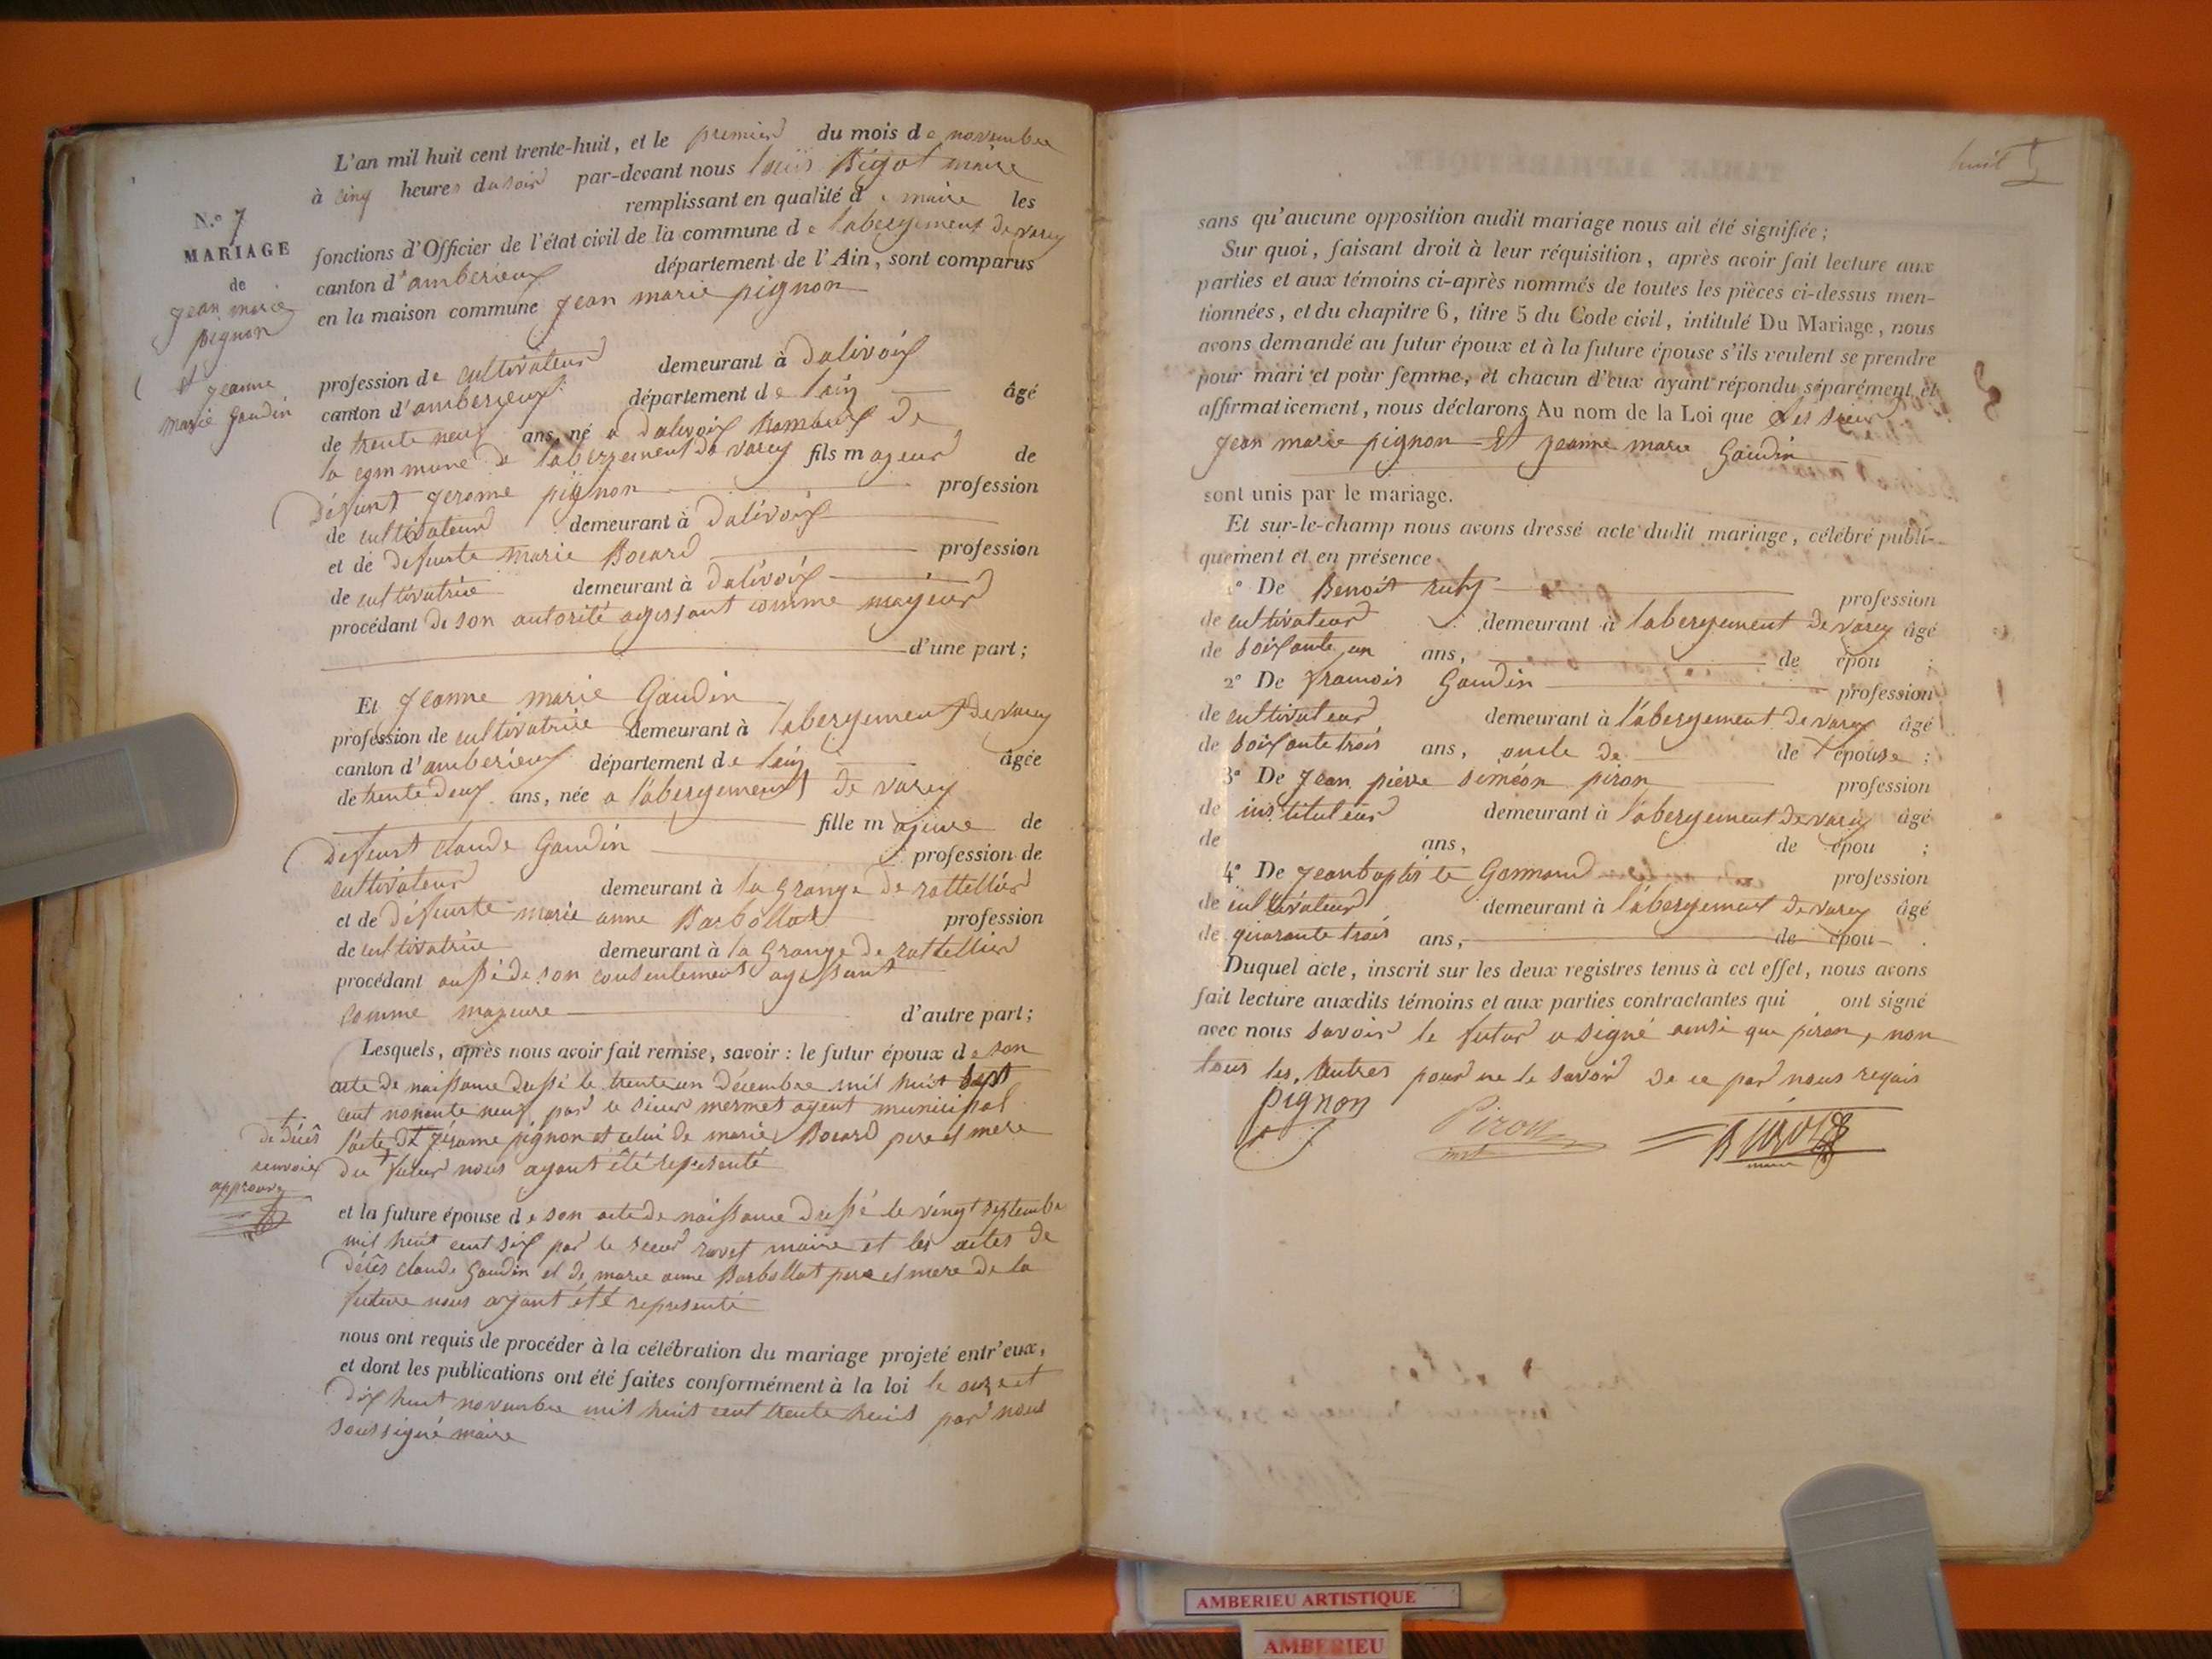 L'an mil huit cent trente-huit, et le premier du mois de novembre
à cinq heures du soir par-devant nous louis Bigot maire
remplissant en qualité de maire les
N.° 7
MARIAGE
de
jean marie
pignon
et jeanne
marie gaudin
fonctions d'Officier de l'état civil de la commune de labergement de varey
canton d'amberieux département de l'Ain, sont comparus
en la maison commune jean marie pignon
profession de cultivateur demeurant à Dalivoix
canton d'amberieux département de lain âgé
de trente neuf ans, né a dalivoix hameux de
la commune de labergement de varey fils majeur de
Défunt jerome pignon profession
de cultivateur demeurant à Dalivoix
et de defunte marie Bocard profession
de cultivatrice demeurant à Dalivoix
procédant de son autorité agissant comme majeur
d'une part;
Et jeanne marie Gaudin
profession de cultivatrice demeurant à labergement de varey
canton d'amberieux département de lain âgée
de trente deux ans, née a l'abergement de varey
fille majeure de
defunt claude Gaudin profession de
cultivateur demeurant à la grange de rattellier
et de défunte marie anne Barbollat profession
de cultivatrice demeurant à la grange de rattellier
procédant aussi de son consentement agissant
comme majeure d'autre part;
Lesquels, après nous avoir fait remise, savoir : le futur époux de son
acte de naissance dressé le trente un décembre mil huit sept
cent nonente neuf par le sieur mermet agent municipal
l'acte + jérome pignon et celui de marie Bocard pere et mere
du futur nous ayant été representé
+
de décès
renvoix
approuvé
et la future épouse de son acte de naissance dressé le vingt septembre
mil huit cent six par le sieur ravet maire et les actes de
décès claude gaudin et de marie anne Barbollat pere et mere de la
future nous ayant été representé
nous ont requis de procéder à la célébration du mariage projeté entr'eux,
et dont les publications ont été faites conformément à la loi le onze et
dix huit novembre mil huit cent trente huit par nous
soussigné maire
huit
sans qu'aucune opposition audit mariage nous ait été signifiée ;
Sur quoi, faisant droit à leur réquisition, après avoir fait lecture aux
parties et aux témoins ci-après nommés de toutes les pièces ci-dessus men-
tionnées, et du chapitre 6, titre 5 du Code civil, intitulé Du Mariage, nous
avons demandé au futur époux et à la future épouse s'ils veulent se prendre
pour mari et pour femme, et chacun d'eux ayant répondu séparément et
affirmativement, nous déclarons Au nom de la Loi que les sieur
jean marie pignon Et jeanne marie Gaudin
sont unis par le mariage.
Et sur-le-champ nous avons dressé acte dudit mariage, célébré publi-
quement et en présence
1° De Benoit ruty profession
de cultivateur demeurant à labergement de varey âgé
de soixante un ans, de épou ;
2° De francois Gaudin profession
de cultivateur demeurant à l'abergement de varey âgé
de soixante trois ans, oncle de de l'épouse ;
3° De jean pierre siméon piron profession
de instituteur demeurant à l'abergement de varey âgé
de ans, de épou ;
4° De jean baptiste Gormand profession
de cultivateur demeurant à l'abergement de varey âgé
de quarante trois ans, de épou .
Duquel acte, inscrit sur les deux registres tenus à cet effet, nous avons
fait lecture auxdits témoins et aux parties contractantes qui ont signé
avec nous savoir le futur a signé ainsi que piron, non
tous les autres pour ne le savoir de ce par nous requis
pignon Piron Bigot
maire
AMBERIEU ARTISTIQUE
AMBERIEU